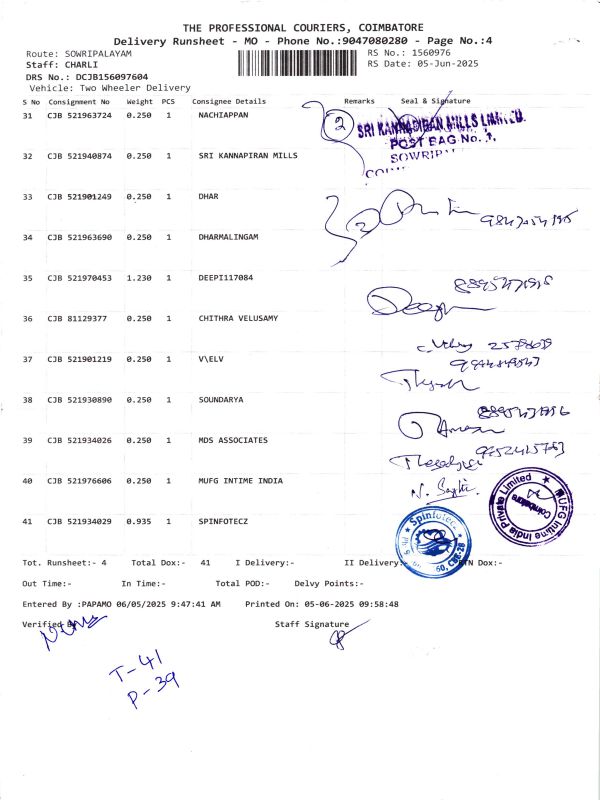 THE PROFESSIONAL COURIERS, COIMBATORE
Delivery Runsheet - MO - Phone No.:9047080280 - Page No.:4
Route: SOWRIPALAYAM RS No.: 1560976
Staff: CHARLI RS Date: 05-Jun-2025
DRS No.: DCJB156097604
Vehicle: Two Wheeler Delivery
S No Consignment No Weight PCS Consignee Details Remarks Seal & Signature
31 CJB 521963724 0.250 1 NACHIAPPAN
2 SRI KANNAPIRAN MILLS LIMITED.
POST BAG No. 1.
32 CJB 521940874 0.250 1 SRI KANNAPIRAN MILLS SOWRIP
33 CJB 521901249 0.250 1 DHAR
2
34 CJB 521963690 0.250 1 DHARMALINGAM
35 CJB 521970453 1.230 1 DEEPI117084
36 CJB 81129377 0.250 1 CHITHRA VELUSAMY
37 CJB 521901219 0.250 1 V\ELV
38 CJB 521930890 0.250 1 SOUNDARYA
39 CJB 521934026 0.250 1 MDS ASSOCIATES
40 CJB 521976606 0.250 1 MUFG INTIME INDIA
MUFG Intime India Private Limited
Coimbatore
41 CJB 521934029 0.935 1 SPINFOTECZ
Spinfotecz
Tot. Runsheet:- 4 Total Dox:- 41 I Delivery:- II Delivery:- RTN Dox:-
Out Time:- In Time:- Total POD:- Delvy Points:-
Entered By :PAPAMO 06/05/2025 9:47:41 AM Printed On: 05-06-2025 09:58:48
Verified By Staff Signature
T-41
P-39